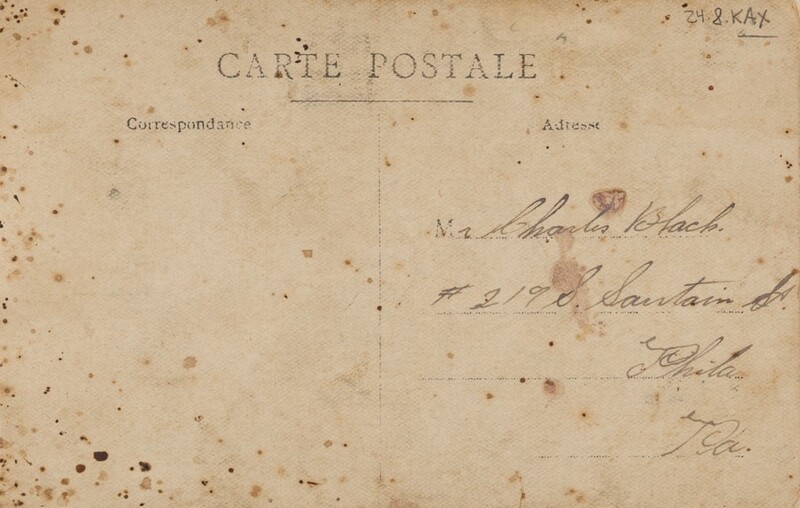 24.8.KAX
CARTE POSTALE
Correspondance
Adresse
Mr Charles Black.
# 219 S. Saurtain St.
Phila
Pa.